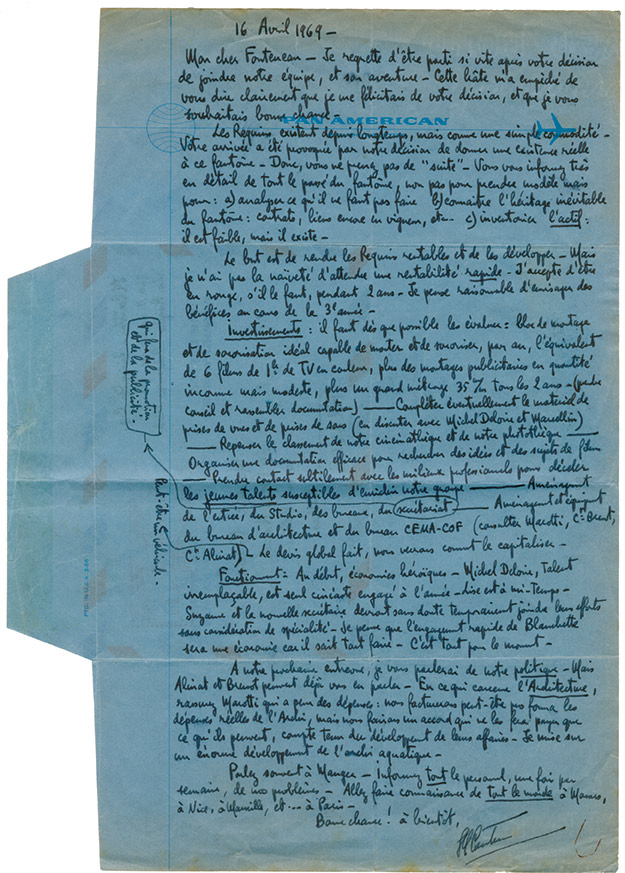 16 Avril 1969 -
Mon cher Fonteneau - Je regrette d'être parti si vite après votre décision
de joindre notre équipe, et son aventure - Cette hâte m'a empêché de
vous dire clairement que je me félicitais de votre décision, et que je vous
souhaitais bonne chance -
PAN AMERICAN
Les Requins existent depuis longtemps, mais comme une simple commodité -
Votre arrivée a été provoquée par notre décision de donner une existence réelle
à ce fantôme - Donc, vous ne prenez pas de "suite" - Vous vous informez très
en détail de tout le passé du fantôme, non pas pour prendre modèle mais
pour : a) analyser ce qu'il ne faut pas faire b) connaître l'héritage inévitable
du fantôme : contrats, liens encore en vigueur, etc... c) inventorier l'actif :
il est faible, mais il existe -
Le but est de rendre les Requins rentables et de les développer - Mais
je n'ai pas la naïveté d'attendre une rentabilité rapide - J'accepte d'être
en rouge, s'il le faut, pendant 2 ans - Je pense raisonable d'envisager des
bénéfices au cours de la 3e année -
Investissements : il faut dès que possible les évaluer = bloc de montage
et de sonorisation idéal capable de monter et de sonoriser, par an, l'équivalent
de 6 films de 1h de TV en couleur, plus des montages publicitaires en quantité
inconnue mais modeste, plus un grand métrage 35 % tous les 2 ans - (prendre
conseil et rassembler documentation) — Compléter éventuellement le matériel de
prises de vues et de prises de sons (en discuter avec Michel Deloire et Marcellin)
— Repenser le classement de notre cinémathèque et de notre photothèque —
Organiser une documentation efficace pour rechercher des idées et des sujets de films
— Prendre contact subtilement avec les milieux professionnels pour déceler
les jeunes talents susceptibles d'enrichir notre groupe — Aménagement
de l'entrée, du Studio, des bureaux, du secrétariat — Aménagement et équipement
du bureau d'architecture et du bureau CEMA-COF (consulter Marotti, Ct Brenot,
Ct Alinat) - Le devis global fait, nous verrons comment le capitaliser -
qui fera de la promotion
et de la publicité -
Peut-être un véhicule -
Fonctionnement = Au début, économies héroïques - Michel Deloire, talent
irremplaçable, est seul cinéaste engagé à l'année - Lise est à mi-temps -
Suzanne et la nouvelle secrétaire devront sans doute temporairement joindre leurs efforts
sans considération de spécialité - Je pense que l'engagement rapide de Blanchette
sera une économie car il sait tout faire - C'est tout pour le moment -
A notre prochaine entrevue, je vous parlerai de notre politique - Mais
Alinat et Brenot peuvent déjà vous en parler - En ce qui concerne l'Architecture,
rassurez Marotti qui a peur des dépenses : nous facturerons peut-être pro forma les
dépenses réelles de l'Archi, mais nous ferons un accord qui ne les fera payer que
ce qu'ils peuvent, compte tenu du développement de leurs affaires - Je mise sur
un énorme développement de l'archi aquatique -
Parlez souvent à Manger - Informez tout le personnel, une fois par
semaine, de nos problèmes - Allez faire connaissance de tout le monde à Monaco,
à Nice, à Marseille, et ... à Paris -
Bonne chance ! à bientôt,